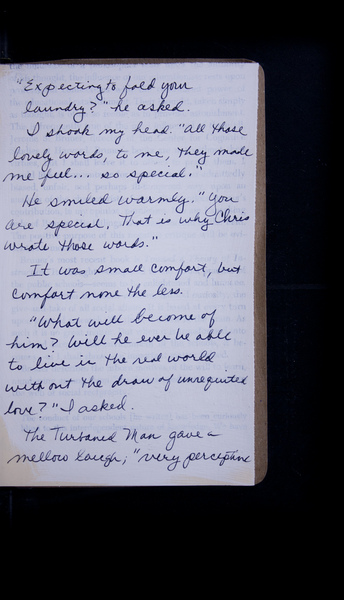 "Expecting to fold your
laundry?" he asked.
I shook my head. "All those
lovely words, to me, they made
me feel... so special."
He smiled warmly. "You
are special. That is why Chris
wrote those words."
It was small comfort, but
comfort none the less.
"What will become of
him? Will he ever be able
to live in the real world
without the draw of unrequited
love?" I asked.
The Turbaned Man gave a
mellow laugh; "very perceptive